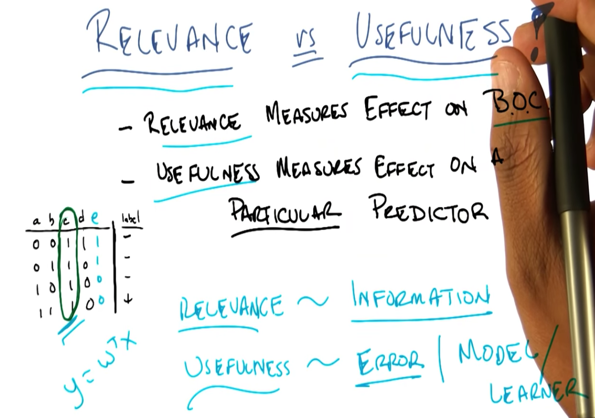 RELEVANCE vs USEFULNESS
- RELEVANCE MEASURES EFFECT ON B.O.C
- USEFULNESS MEASURES EFFECT ON A
PARTICULAR PREDICTOR
a b c d e label
0 0 1 1 1 -
0 1 1 0 1 -
1 0 1 0 0 -
1 1 1 0 0 +
y = wᵀx
RELEVANCE ~ INFORMATION
USEFULNESS ~ ERROR | MODEL /
LEARNER